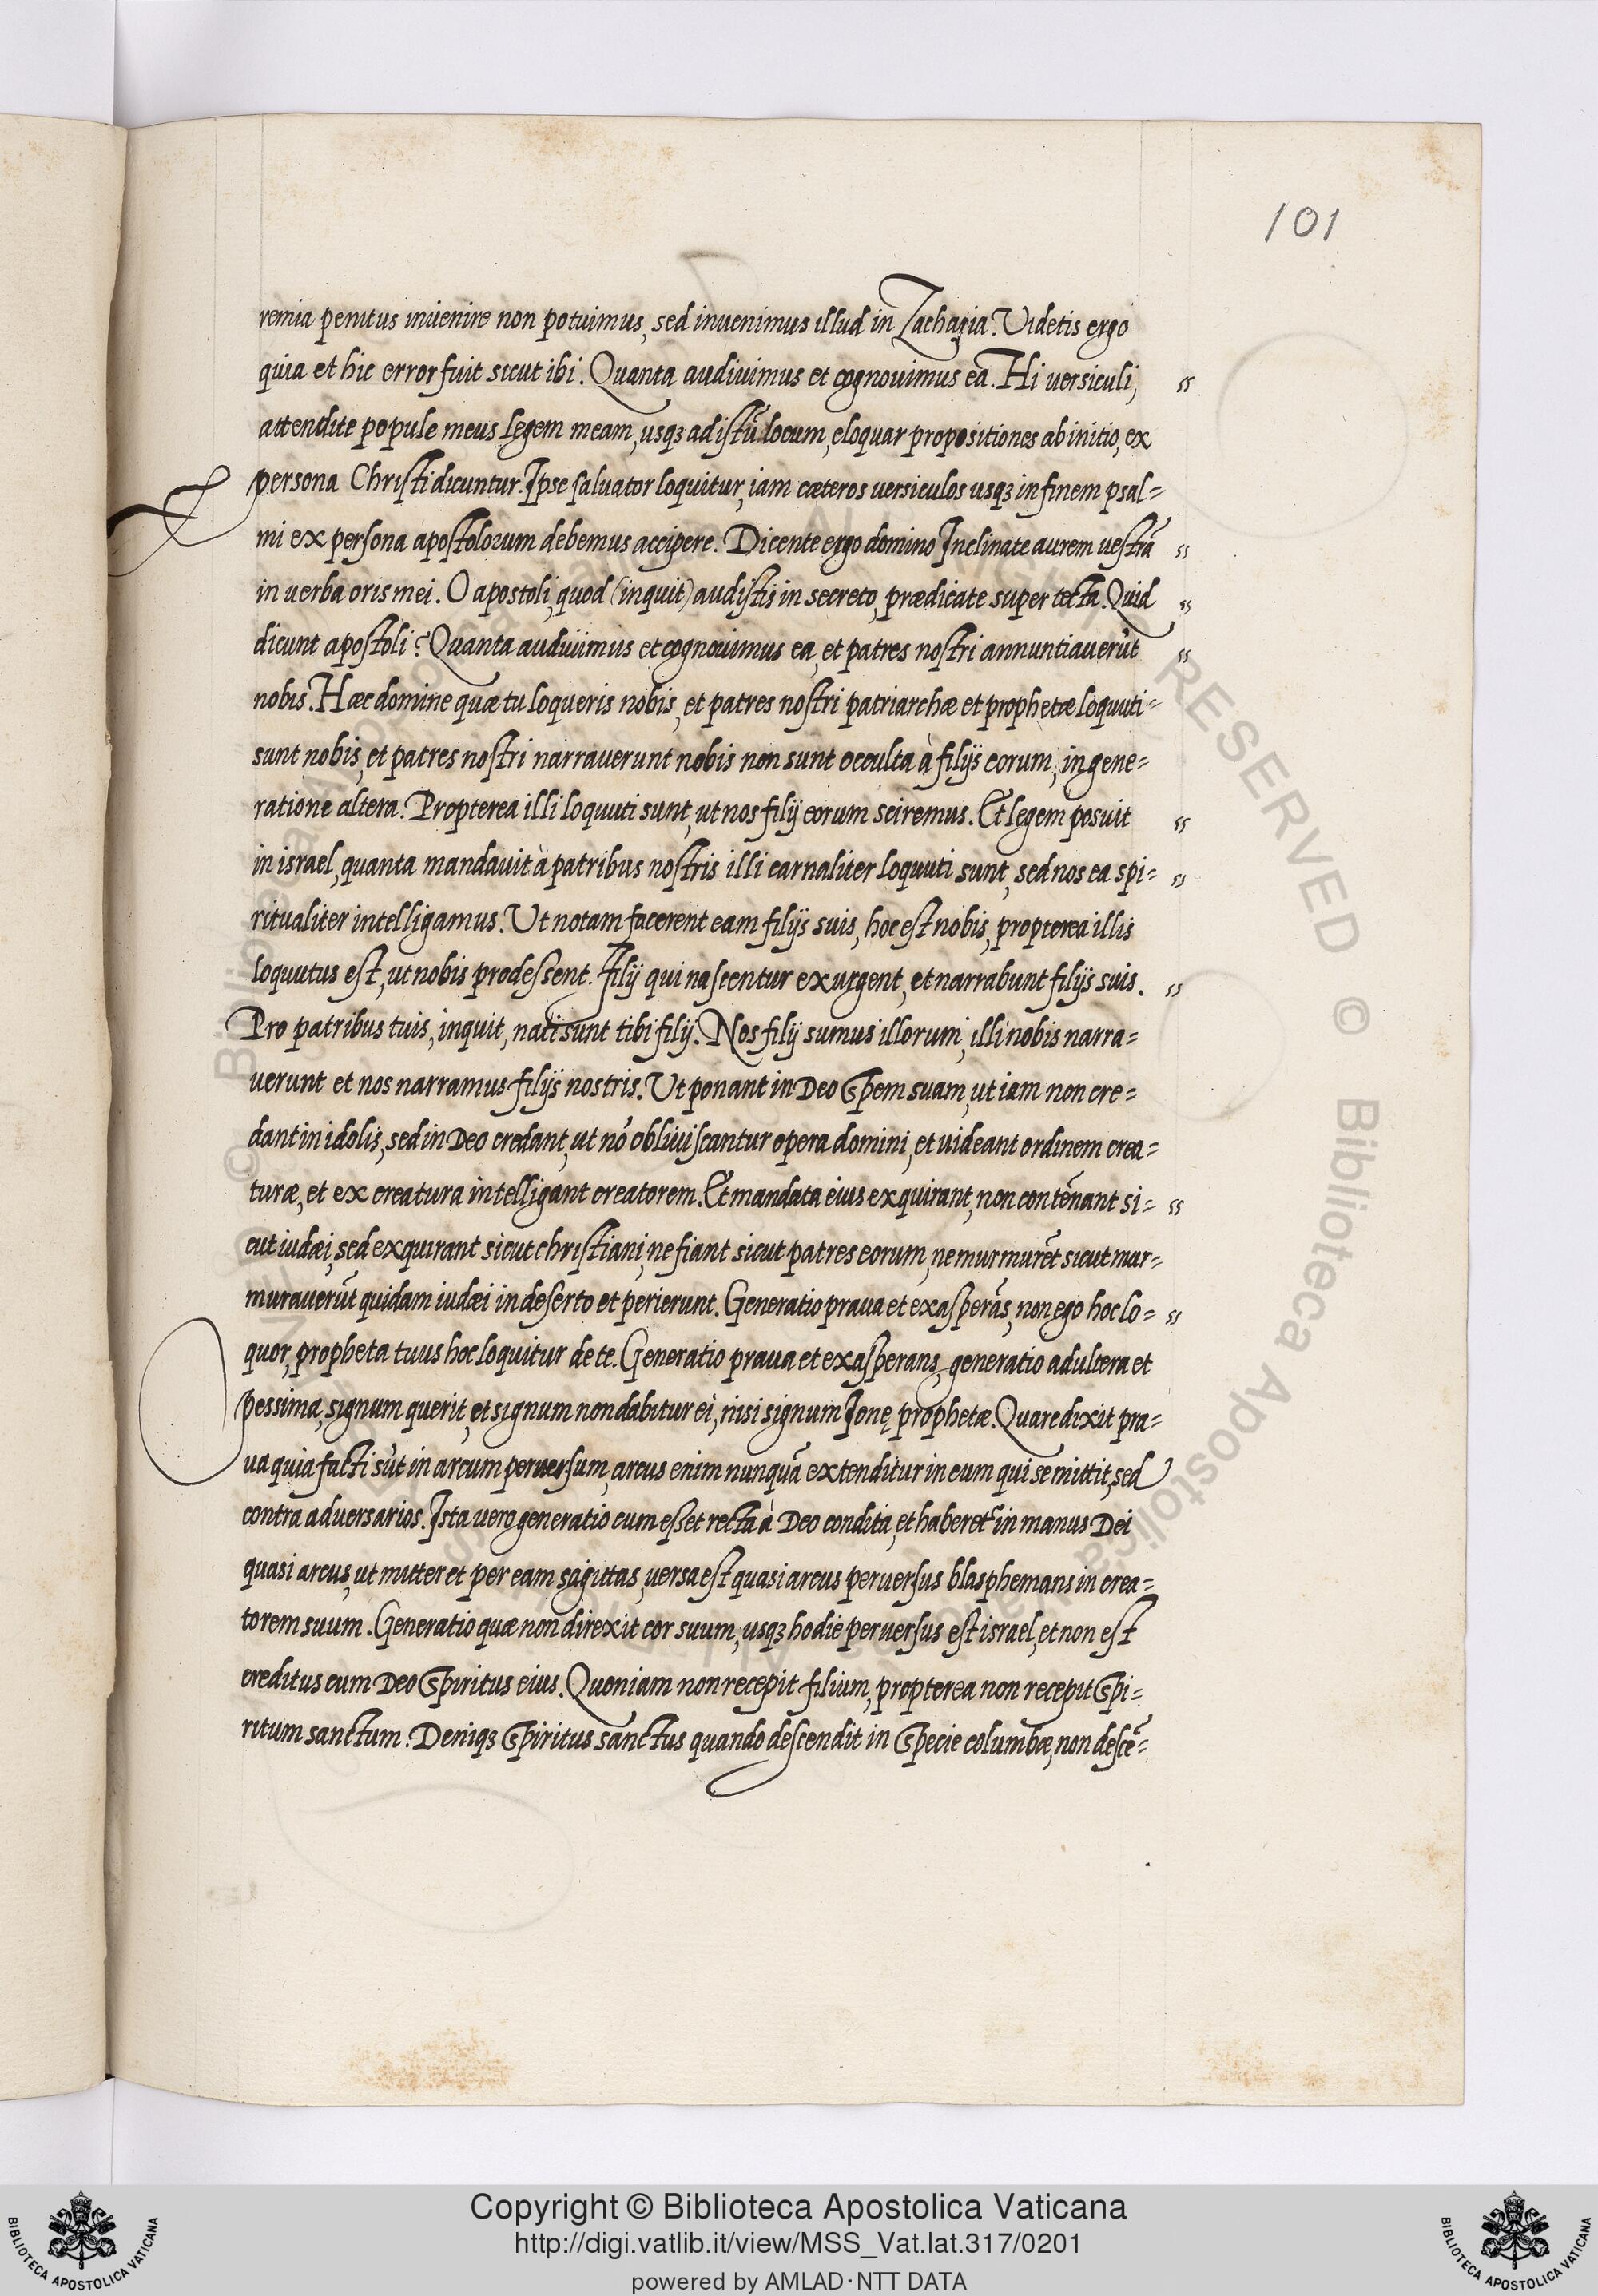 101
remia penitus inuenire non potuimus, sed inuenimus illud in Zacharia. Videtis ergo
quia et hic error fuit sicut ibi. Quanta audiuimus et cognouimus ea. Hi uersiculi, "
attendite popule meus legem meam, usqꝫ ad istũ locum, eloquar propositiones ab initio, ex
persona Christi dicuntur. Ipse saluator loquitur, iam cæteros uersiculos usqꝫ in finem psal=
mi ex persona apostolorum debemus accipere. Dicente ergo domino Inclinate aurem uestrã "
in uerba oris mei. O apostoli, quod (inquit) audistis in secreto, prædicate super tecta. Quid "
dicunt apostoli? Quanta audiuimus et cognouimus ea, et patres nostri annuntiauerũt "
nobis. Hæc domine quæ tu loqueris nobis, et patres nostri patriarchæ et prophetæ loquuti=
sunt nobis, et patres nostri narrauerunt nobis non sunt occulta à filijs eorum, in gene=
ratione altera. Propterea illi loquuti sunt, ut nos filij eorum sciremus. Et legem posuit "
in israel, quanta mandauit à patribus nostris illi carnaliter loquuti sunt, sed nos ea spi= "
ritualiter intelligamus. Ut notam facerent eam filijs suis, hoc est nobis, propterea illis
loquutus est, ut nobis prodessent. Filij qui nascentur exurgent, et narrabunt filijs suis. "
Pro patribus tuis, inquit, nati sunt tibi filij. Nos filij sumus illorum, illi nobis narra=
uerunt et nos narramus filijs nostris. Ut ponant in Deo spem suam, ut iam non cre=
dant in idolis, sed in Deo credant, ut nõ obliuiscantur opera domini, et uideant ordinem crea=
turæ, et ex creatura intelligant creatorem. Et mandata eius exquirant, non contẽnant si= "
cut iudæi, sed exquirant sicut christiani, ne fiant sicut patres eorum, ne murmurẽt sicut mur=
murauerũt quidam iudæi in deserto et perierunt. Generatio praua et exasperãs, non ego hoc lo= "
quor, propheta tuus hoc loquitur de te. Generatio praua et exasperans, generatio adultera et
pessima, signum querit, et signum non dabitur ei, nisi signum Ionę prophetæ. Quare dixit pra=
ua quia facti sũt in arcum peruersum, arcus enim nunquã extenditur in eum qui se mittit, sed
contra aduersarios. Ista uero generatio cum esset recta à Deo condita, et haberet᷑ in manus Dei
quasi arcus, ut mitteret per eam sagittas, uersa est quasi arcus peruersus blasphemans in crea=
torem suum. Generatio quæ non direxit cor suum, usqꝫ hodie peruersus est israel, et non est
creditus cum Deo spiritus eius. Quoniam non recepit filium, propterea non recepit spi=
ritum sanctum. Deniqꝫ spiritus sanctus quando descendit in specie columbæ, non descẽ=
© Biblioteca Apostolica Vaticana
ALL RIGHTS RESERVED
Copyright © Biblioteca Apostolica Vaticana
http://digi.vatlib.it/view/MSS_Vat.lat.317/0201
powered by AMLAD·NTT DATA
BIBLIOTECA APOSTOLICA VATICANA
BIBLIOTECA APOSTOLICA VATICANA